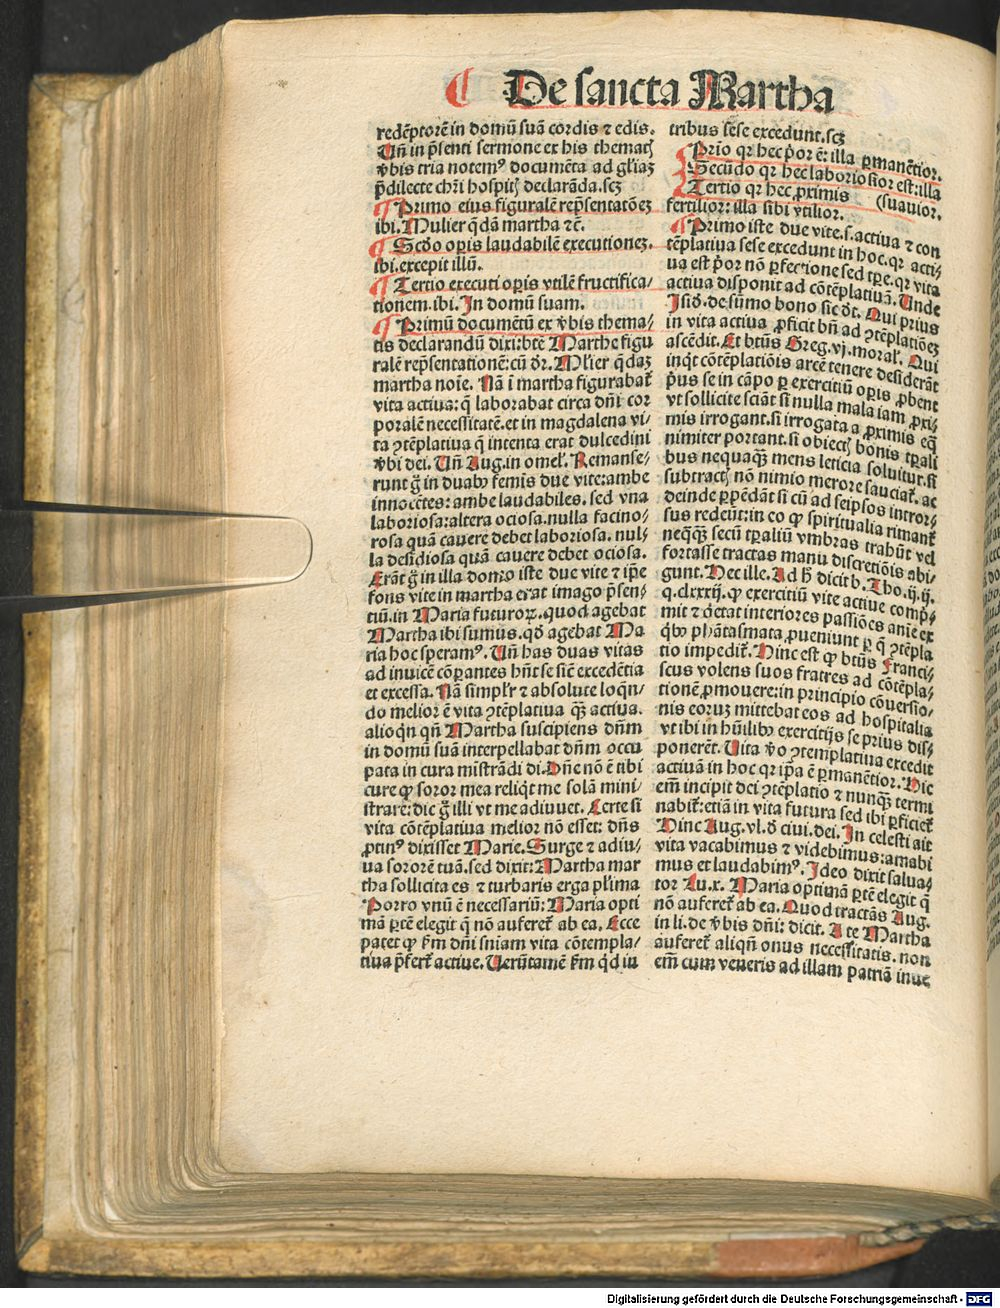 ¶ De sancta Martha
redēptorē in domū suā cordis ⁊ edis.
Un̄ in p̄senti sermone ex his thematꝭ
v̄bis tria notemꝰ documēta ad gl̄iaꝫ
p̄dilecte chr̄i hospitꝭ declarāda.scꝫ
¶ Primo eius figuralē rep̄sentatōeꝫ
ibi.Mulier q̄dā martha ⁊c̄.
¶ Scd̄o oꝑis laudabilē executioneꝫ.
ibi.excepit illū.
¶ Tertio executi oꝑis vtilē fructifica/
tionem.ibi.In domū suam.
¶ Primū documētū ex v̄bis thema/
tis declarandū dixi:btē Marthe figu
ralē rep̄sentationē:cū dr̄. Ml̓ier q̄daꝫ
martha noīe. Nā ī martha figurabat̄
vita actiua:q̄ laborabat circa dn̄i cor
poralē necessitatē.et in magdalena vi/
ta ꝯtēplatiua q̄ intenta erat dulcedini
v̄bi dei. Un̄ Aug.in omel̓. Remanse/
runt g̊ in duabꝰ femis due vite:ambe
innocētes:ambe laudabiles. sed vna
laboriosa:altera ociosa.nulla facino/
rosa quā cauere debet laboriosa. nul/
la desidiosa quā cauere debet ociosa.
Erāt g̊ in illa domo iste due vite ⁊ ip̄e
fons vite in martha erat imago p̄sen/
tiū.in Maria futuroꝝ.quod agebat
Martha ibi sumus.qd̄ agebat Ma
ria hoc speramꝰ. Un̄ has duas vitas
ad inuicē cōꝑantes hn̄t se sic̄ excedētia
et excessa. Nā simpl̓r ⁊ absolute loqn̄/
do melior ē vita ꝯtēplatiua qꝫ actiua.
alioqn̄ qn̄ Martha suscipiens dn̄m
in domū suā interpellabat dn̄m occu
pata in cura mistrādi di.Dn̄e nō ē tibi
cure ꝙ soror mea reliqt me solā mini/
strare:dic g̊ illi vt me adiuuet. Certe si
vita cōtēplatiua melior nō esset: dn̄s
ꝓtinꝰ dixisset Marie.Surge ⁊ adiu/
ua sororē tuā.sed dixit:Martha mar
tha sollicita es ⁊ turbaris erga pl̓ima
Porro vnū ē necessariū:Maria opti
mā ꝑtē elegit q̄ nō auferet̄ ab ea. Ecce
patet ꝙ km̄ dn̄i sn̄iam vita cōtempla/
tiua p̄fert̄ actiue.Uerūtamē km̄ q̄d iu
tribus sese excedunt.scꝫ
Prīo qr hec p̓or ē: illa ꝑmanētior.
Secūdo qr hec laboriosior est:illa
Tertio qr hec ꝓximis (suauior.
fertilior: illa sibi vtilior.
¶ Primo iste due vite.s.actiua ⁊ con
tēplatiua sese excedunt in hoc.qr acti/
ua est p̓or nō ꝑfectione sed tꝑe.qr vita
actiua disponit ad cōtēplatiuā. Unde
Isid̓.de sūmo bono sic dt̄. Qui prius
in vita actiua ꝓficit bn̄ ad ꝯtēplatiōeꝫ
ascēdit. Et btūs Greg.vj.moral̓. Qui
inqt cōtēplatiōis arcē tenere desiderāt
p̓us se in cāpo ꝑ exercitiū oꝑis ꝓbent
vt sollicite sciāt si nulla mala iam ꝓxi/
mis irrogant.si irrogata a ꝓximis eq̄
nimiter portant.si obiectꝭ bonis tꝑali
bus nequaqꝫ mens leticia soluitur.si
subtractꝭ nō nimio merore sauciat̄. ac
deinde ꝑpēdāt si cū ad seipsos intror/
sus redeūt:in eo ꝙ spiritualia rimant̄
neq̄qꝫ secū tꝑaliū vmbras trahūt vel
fortasse tractas manu discretiōis abi/
gunt. Hec ille. Ad h̓ dicit b. Tho.ij.ij.
q.clxxxij.ꝙ exercitiū vite actiue comp̄/
mit ⁊ q̓etat interiores passiōes anīe ex
qbꝰ phātasmata ꝓueniunt ꝑ q̄ ꝯtēpla
tio impedit̄. Hinc est ꝙ btūs Franci/
scus volens suos fratres ad cōtēpla/
tionē ꝓmouere:in principio cōuersio/
nis eoruꝫ mittebat eos ad hospitalia
vt ibi in hūilibꝰ exercitijs se prius dis/
ponerēt. Uita v̄o ꝯtemplatiua excedit
actiuā in hoc qr ip̄a ē ꝑmanētior. Hic
em̄ incipit dei ꝯtēplatio ⁊ nunqꝫ termi
nabit̄:etiā in vita futura sed ibi ꝑficiet̄
Hinc Aug. vl.d̓ ciui.dei. In celesti ait
vita vacabimus ⁊ videbimus:amabi
mus et laudabimꝰ. Ideo dixit salua/
tor Lu.x. Maria optimā ꝑtē elegit q̄
nō auferet̄ ab ea. Quod tractās Aug.
in li. de v̄bis dn̄i: dicit. A te Martha
auferet̄ aliqn̄ onus necessitatis. non
em̄ cum veneris ad illam patriā inue
Digitalisierung gefördert durch die Deutsche Forschungsgemeinschaft - DFG